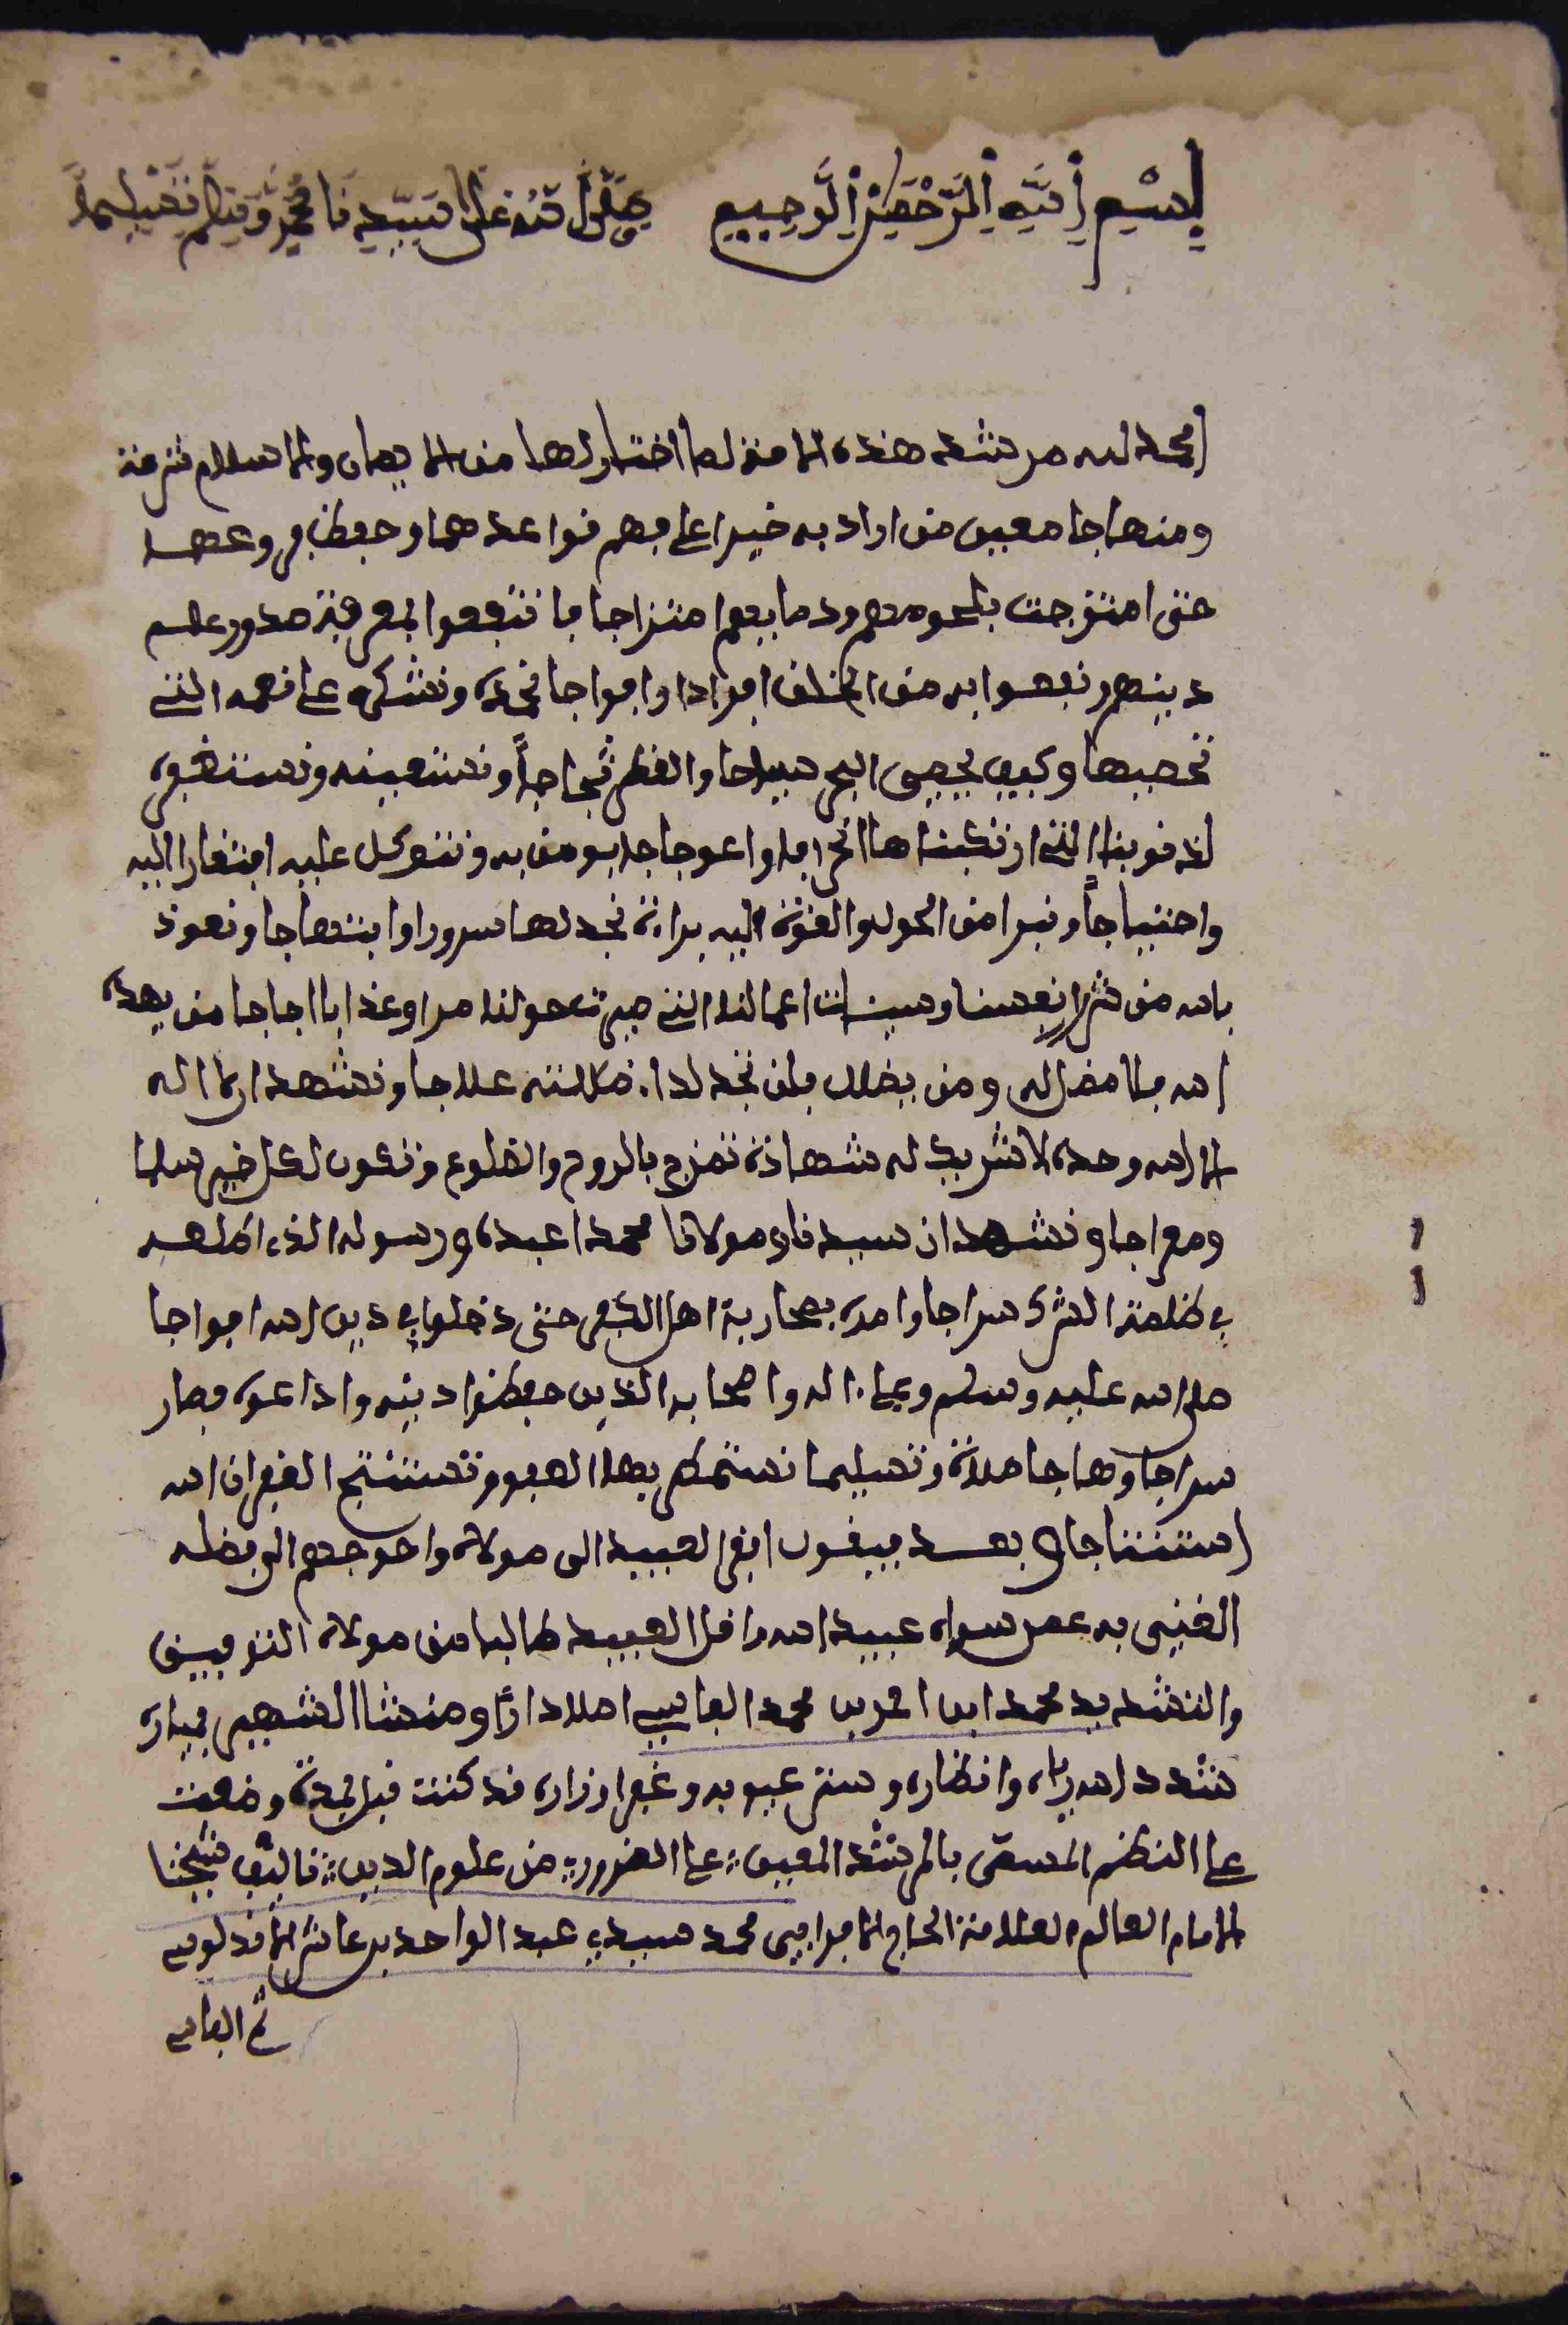 بِسْمِ اِللَّهِ اِلرَّحْمَٰنِ اِلرَّحِيمِ صَلَّى اللَّهُ عَلَى سَيِّدِنَا مُحَمَّدٍ وَسَلَّمَ تَسْلِيماً
الحمد لله مرشد هذه الامة لما اختار لها من الايمان والاسلام شرعة
ومنهاجا معين من اراد به خيرا على فهم قواعدهما وحفظ فروعهما
حتى امتزجت بلحومهم ودمايهم امتزاجا فانتفعوا بمعرفة صدور علم
دينهم ونفعوا به من الخلف افرادا وافواجا نحمده ونشكره على نعمه التي
نحصيها وكيف يحصى البحر سياحا والقطر ثجاجاً ونستعينه ونستغفره
لذنوبنا التي ارتكبناها انحرافا واعوجاجا ونومن به ونتوكل عليه افتقارا اليه
واحتياجاً ونبرا من الحول والقوة اليه براءة نجد لها سرورا وابتهاجا ونعوذ
بالله من شر انفسنا وسيئات اعمالنا التي صيرت حولنا مرا وعذابا اجاجا من يهده
الله فلا مضل له ومن يضلل فلن نجد لداء ضلالته علاجا ونشهد ان لا اله
الا الله وحده لا شريك له شهادة تمزج بالروح والضلوع وتكون لكل خير سلما
ومعراجا ونشهد ان سيدنا ومولانا محمدا عبده ورسوله الذي اطلعه
في ظلمة الشرك سراجا وامره بمحاربة اهل الكفر حتى دخلوا في دين الله افواجا
صلى الله عليه وسلم وعلى ءاله واصحابه الذين حفظوا دينه واذاعوه فصار
سراجا وهاجا صلاة وتسليما نستمطر بهما العفو ونستنتج الغفران الله
استنتاجا وبعد فيقول افقر العبيد الى مولاه واحوجهم الى فضله
الغني به عمن سواه عبيد الله واقل العبيد طالبا من مولاه التوفيق
والتشديد محمد ابن احمد بن محمد الفاسي اصلا دارا ومنشا الشهير بميارة
شدد الله رايه وانظاره وستر عيوبه وغفر اوزاره قد كنت قبل بمدة وضعت
على النظم المسمى بالمرشد المعين على الضروري من علوم الدين تاليف شيخنا
الامام العالم العلامة الحاج الابر ابي محمد سيدي عبد الواحد بن عاشر الاندلسي
ثم الفاسي